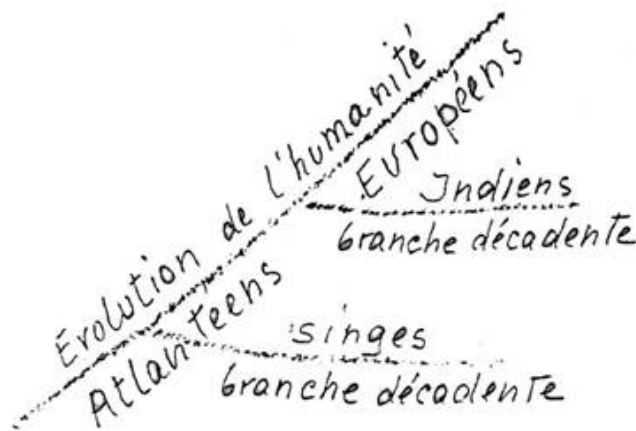 Evolution de l'humanité
Européens
Indiens
branche décadente
Atlanteens
singes
branche décadente